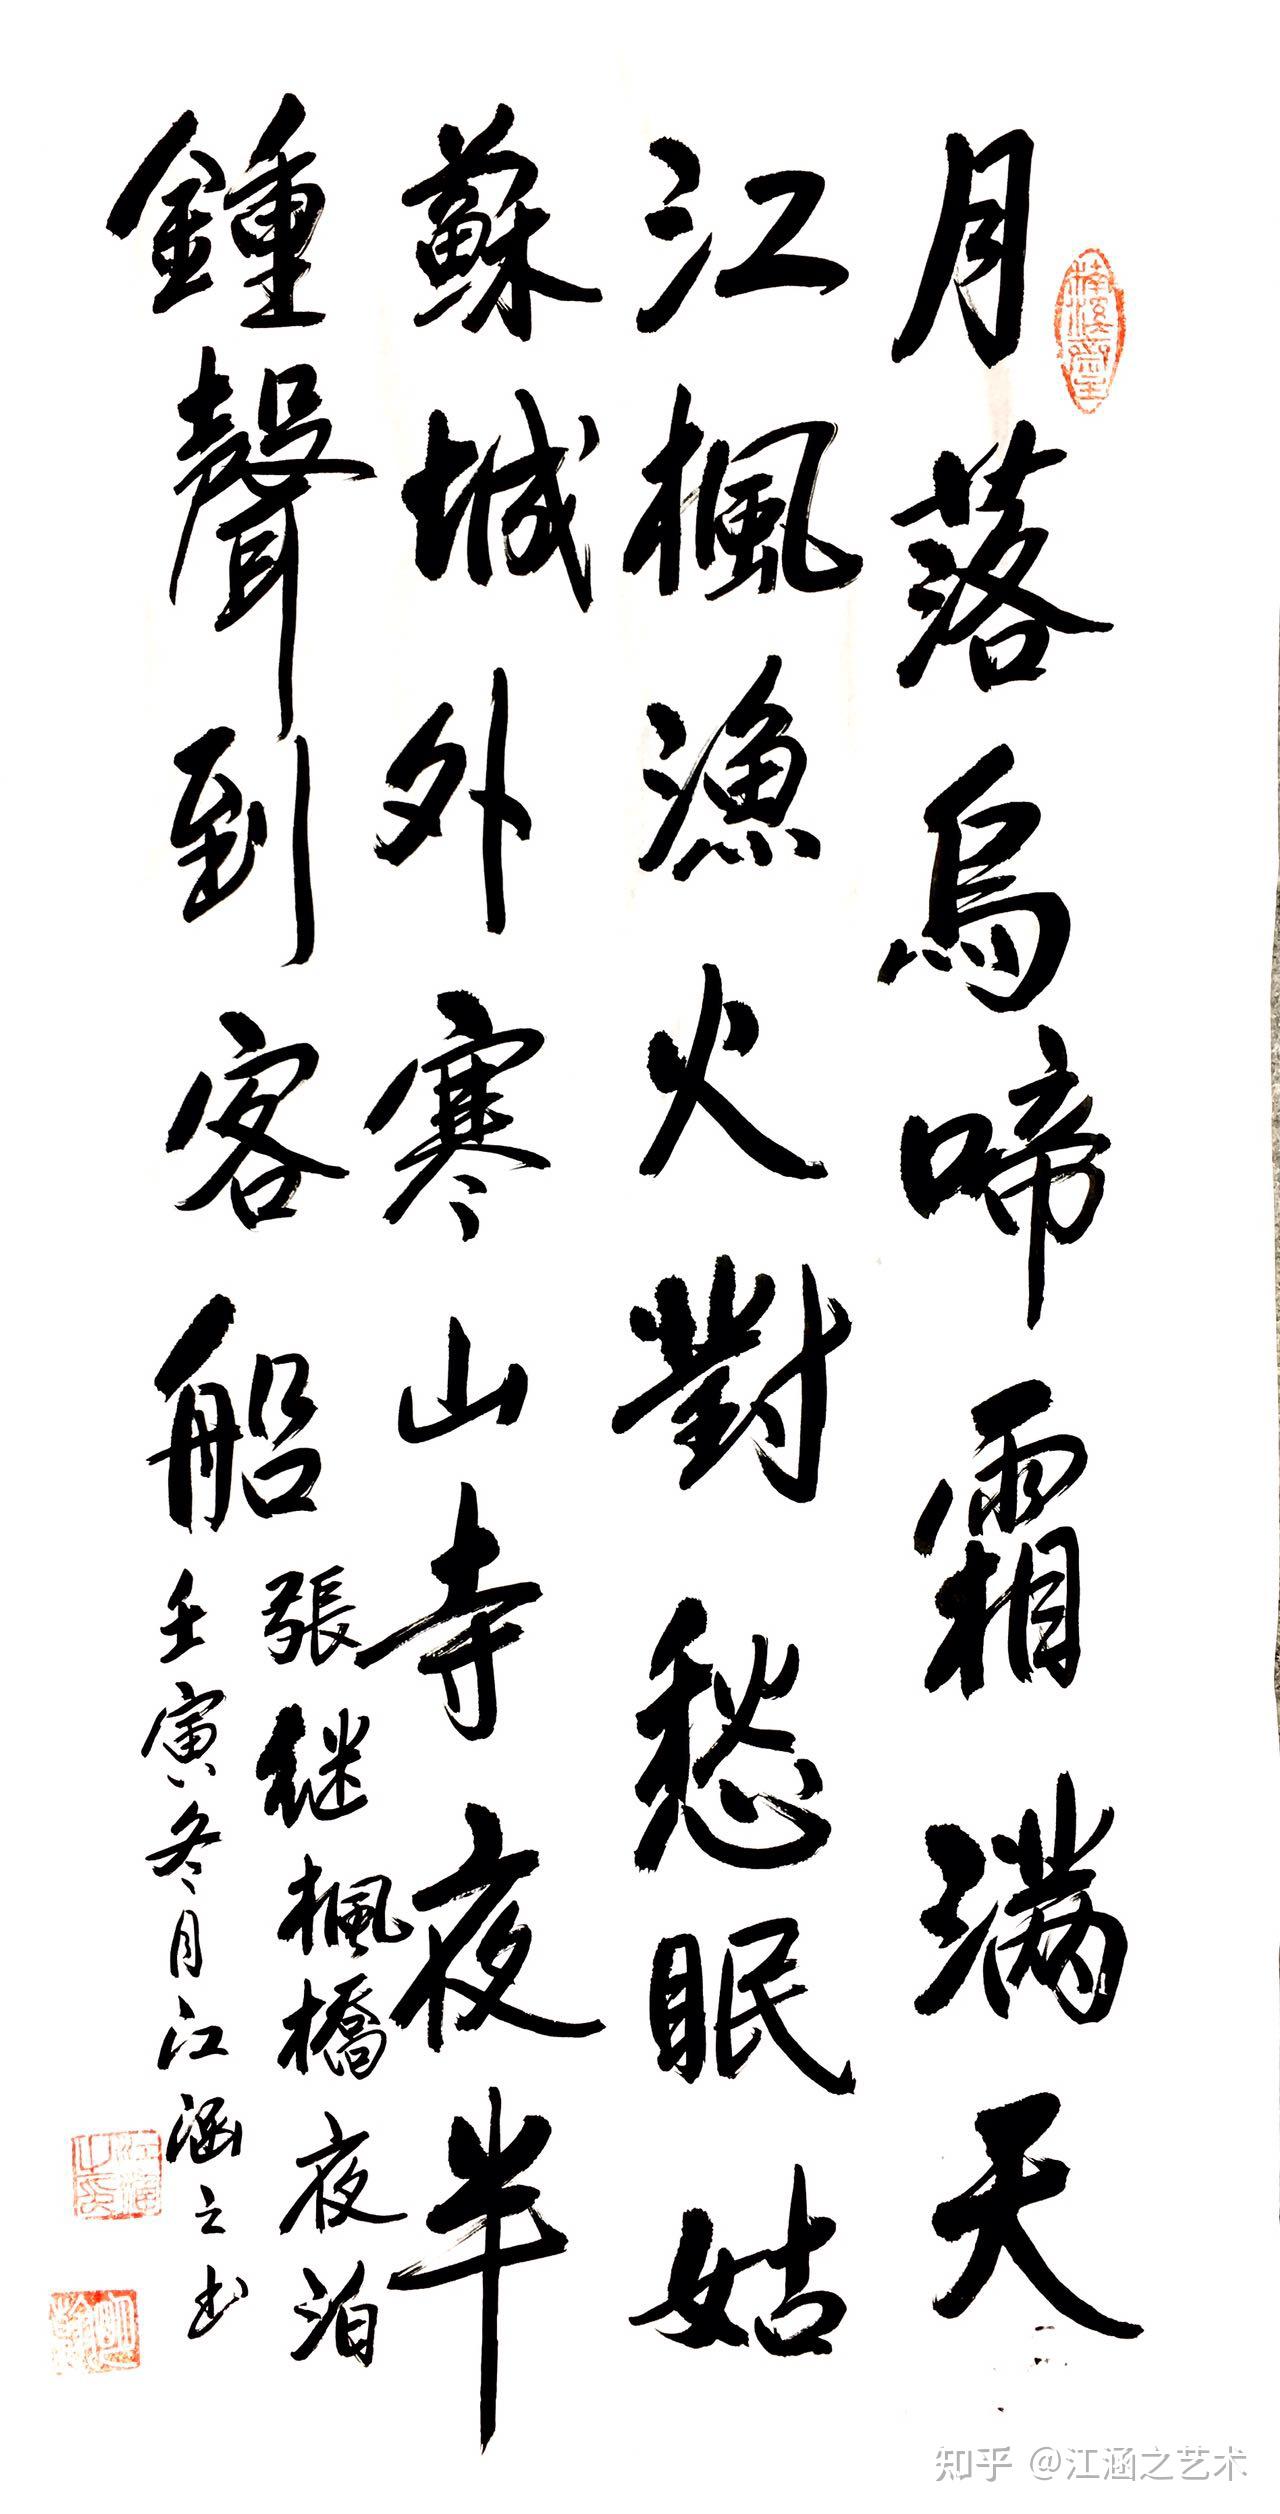 月落烏啼霜滿天
江楓漁火對愁眠姑
蘇城外寒山寺夜半
鍾聲到客船
張继楓橋夜泊
壬寅冬月江涵之书
知乎 @江涵之艺术